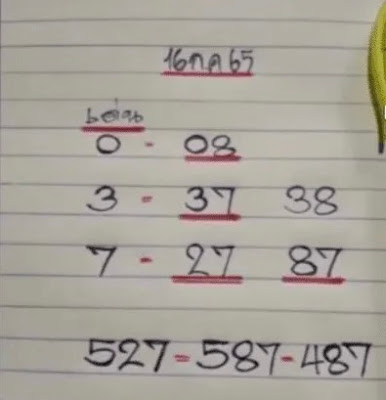 16 ก.ค 65
เด่น
0 - 08
3 - 37 38
7 - 27 87
527-587-487